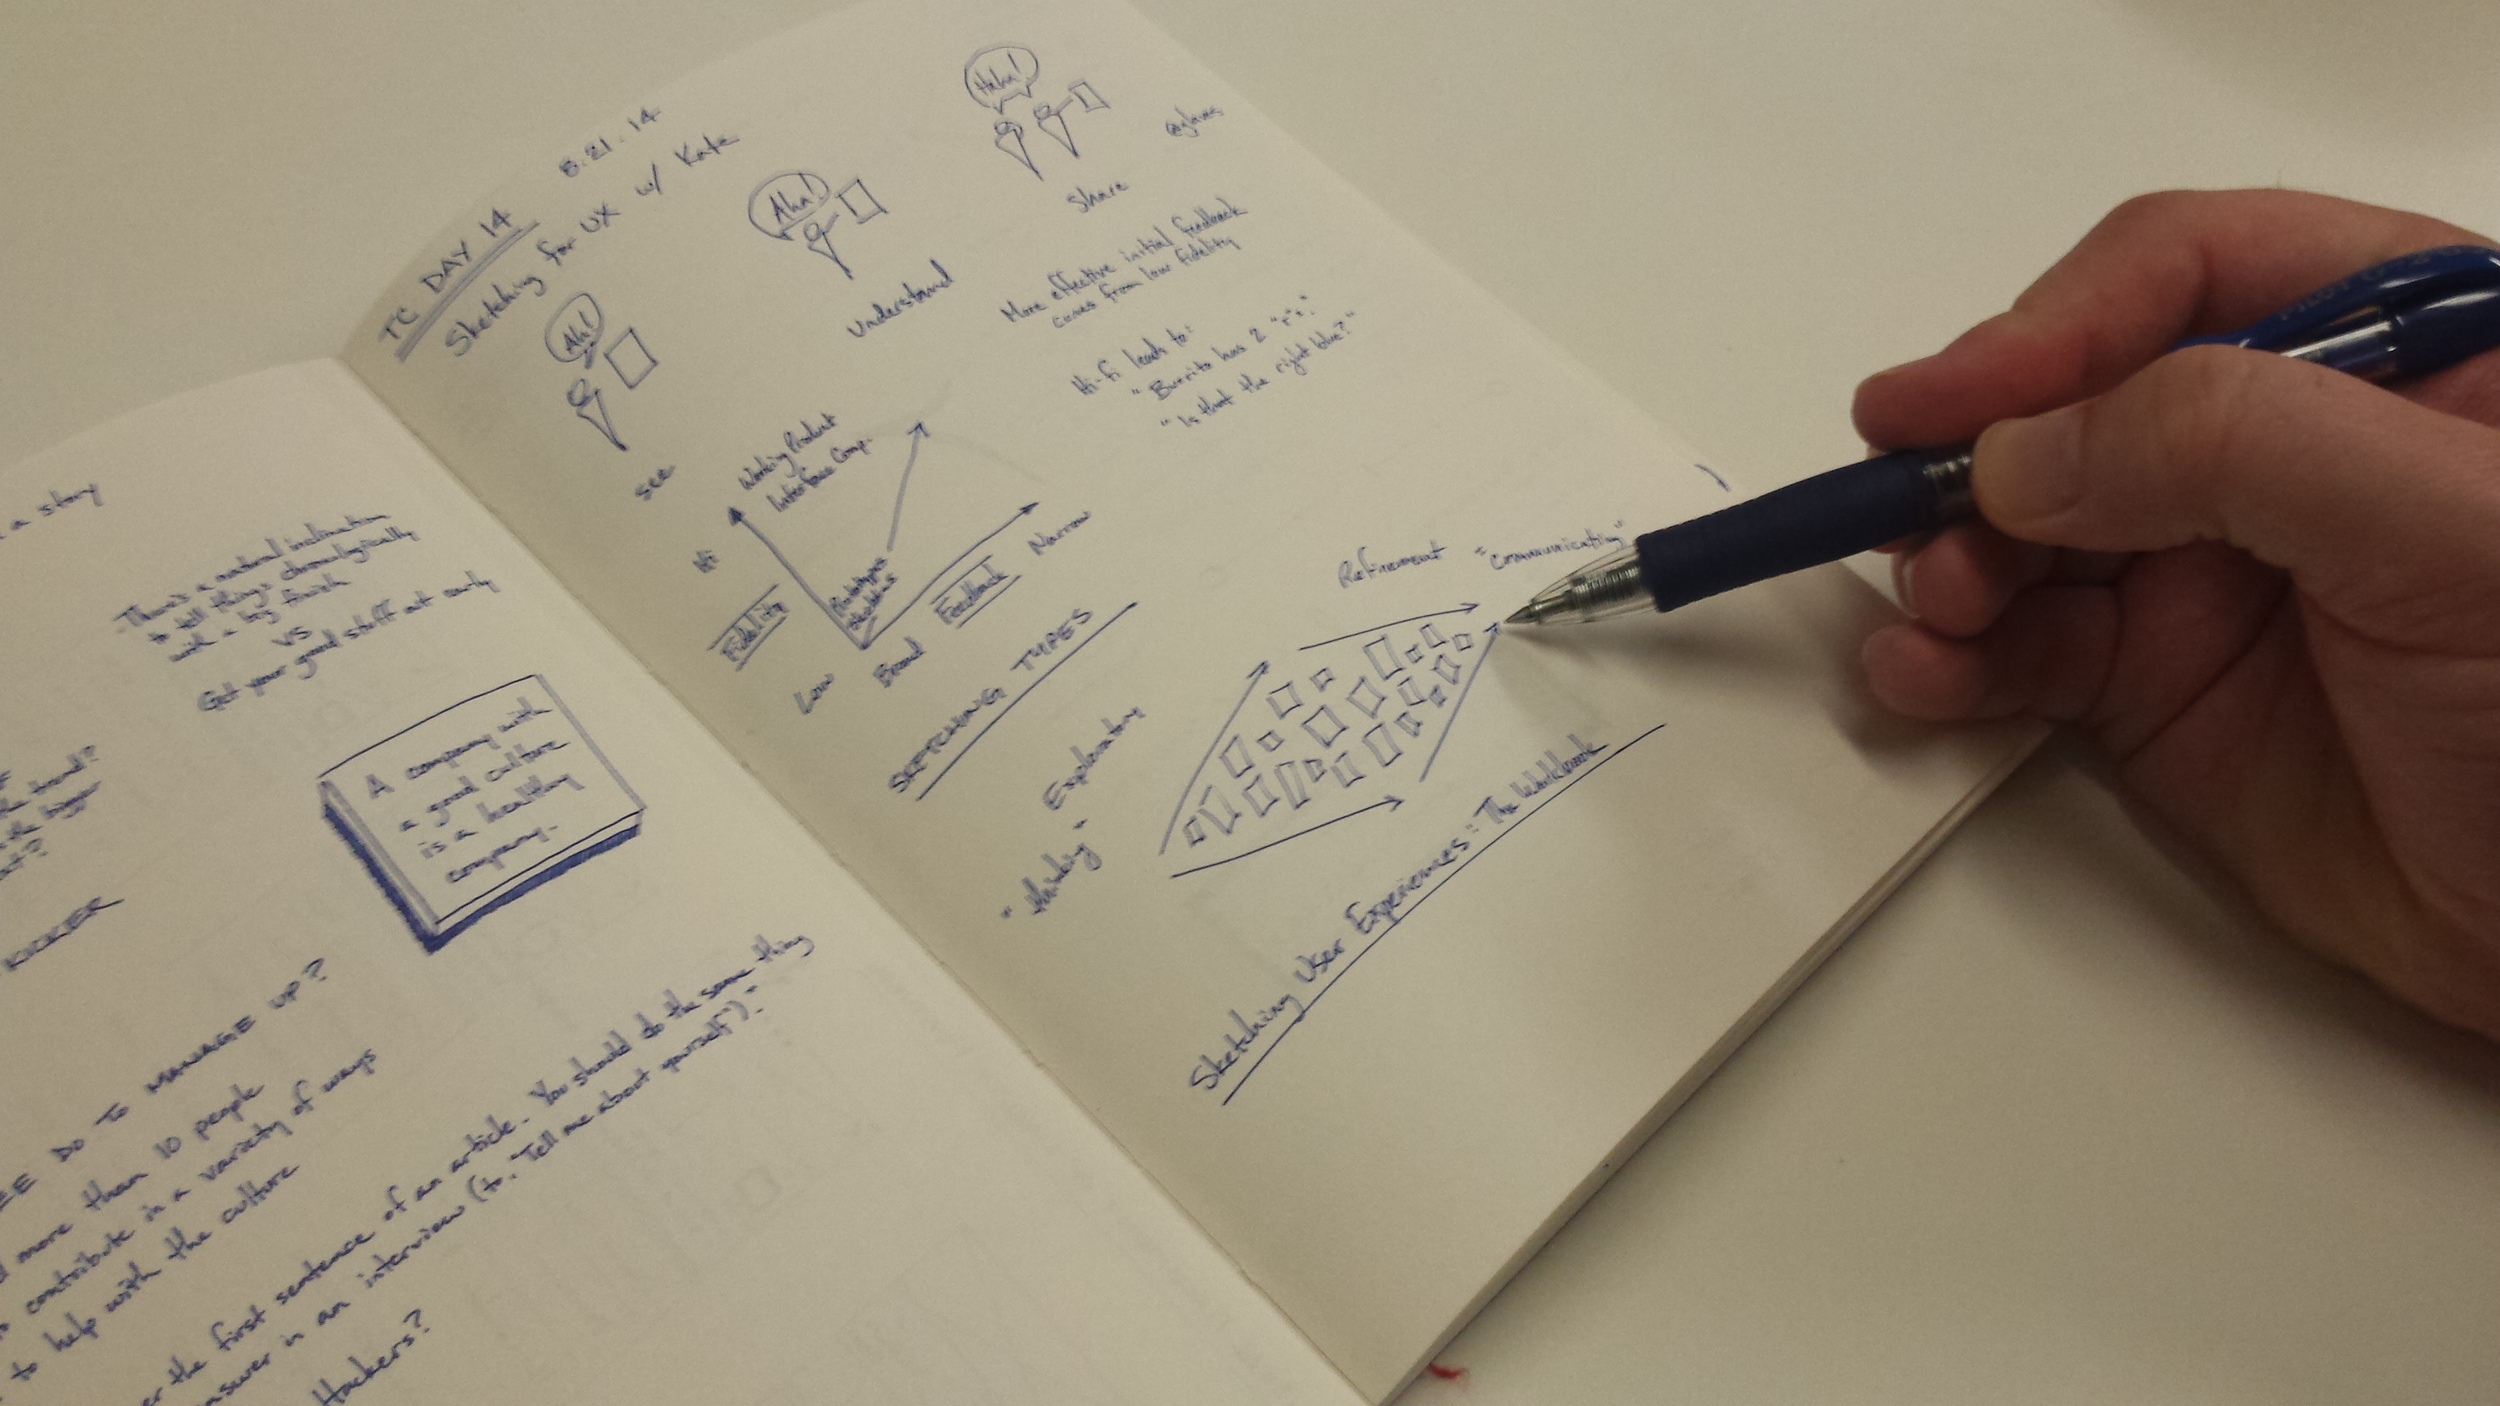 a story
There's a natural inclination
to tell things chronologically
with a big finish
VS
Get your good stuff out early
A company with
a good culture
is a healthy
company.
KICKER
DO TO MANAGE UP?
more than 10 people
contribute in a variety of ways
to help with the culture
the first sentence of an article. You should do the same thing
answer in an interview (to, "Tell me about yourself").
Hackers?
TC DAY 14
8.21.14
Sketching for UX w/ Kate
Ah!
see
Aha!
understand
Haha!
share
More effective initial feedback
comes from low fidelity
Hi-fi leads to:
"Burrito has 2 "r"s."
"Is that the right blue?"
Working Product
Interface Comp.
Hi
Fidelity
Low
Prototypes
Broad
Feedback
Narrow
SKETCHING TYPES
Exploratory
"thinking"
Refinement
"Communicating"
Sketching User Experiences: The Workbook
PILOT G-2